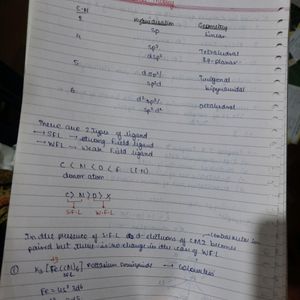 Theory
C.N Hybridisation Geometry
2 sp Linear
4 sp³ Tetrahedral
dsp² Sq. planar
5 dsp³/ Trigonal
sp³d bipyramidal
6 d²sp³/ octahedral
sp³d²
There are 2 types of ligand
→ SFL → strong field ligand
→ WFL → Weak field ligand
C < N < O < F (EN)
donor atom
C > N > O > X
S.F.L W.F.L
central metal
In the presence of S.F.L d-electrons of CMI becomes
paired but there is no change in the case of W.F.L
① K₃ [Fe(CN)₆] → colourless
SFL
Fe = 4s² 3d⁶